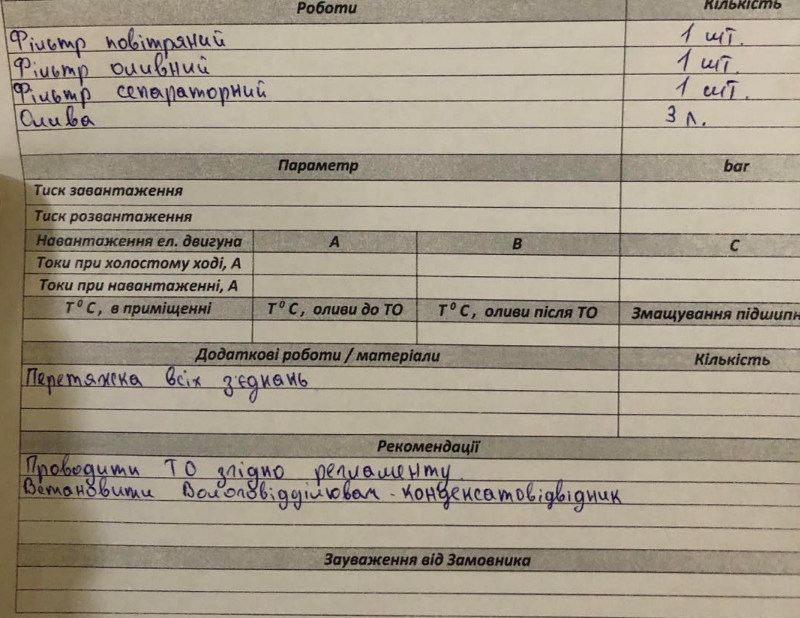 Роботи Кількість
Фільтр повітряний 1 шт.
Фільтр оливний 1 шт.
Фільтр сепараторний 1 шт.
Олива 3 л.
Параметр bar
Тиск завантаження
Тиск розвантаження
Навантаження ел. двигуна A B C
Токи при холостому ході, А
Токи при навантаженні, А
T⁰ C, в приміщенні T⁰ C, оливи до ТО T⁰ C, оливи після ТО Змащування підшипн
Додаткові роботи / матеріали Кількість
Перетяжка всіх з'єднань
Рекомендації
Проводити ТО згідно регламенту.
Встановити Вологовідділювач - конденсатовідвідник
Зауваження від Замовника